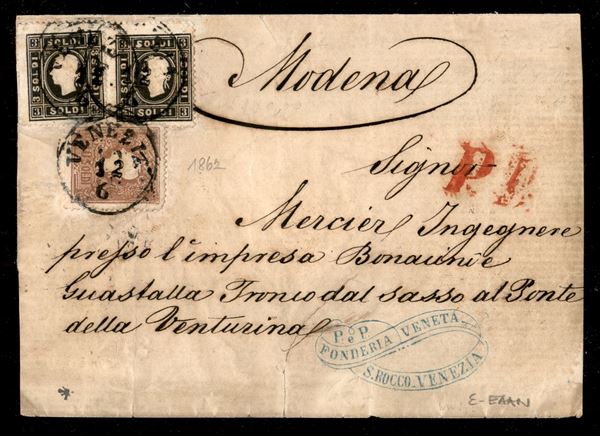 3 SOLDI SOLDI 3
3 SOLDI SOLDI 3
Modena
VENEZIA
12
6
1862
Signor
P D
Mercier Ingegnere
presso l'impresa Bonaiuni e
Guastalla Tronco dal sasso al Ponte
della Venturina
P. e P.
FONDERIA VENETA
S. ROCCO. VENEZIA